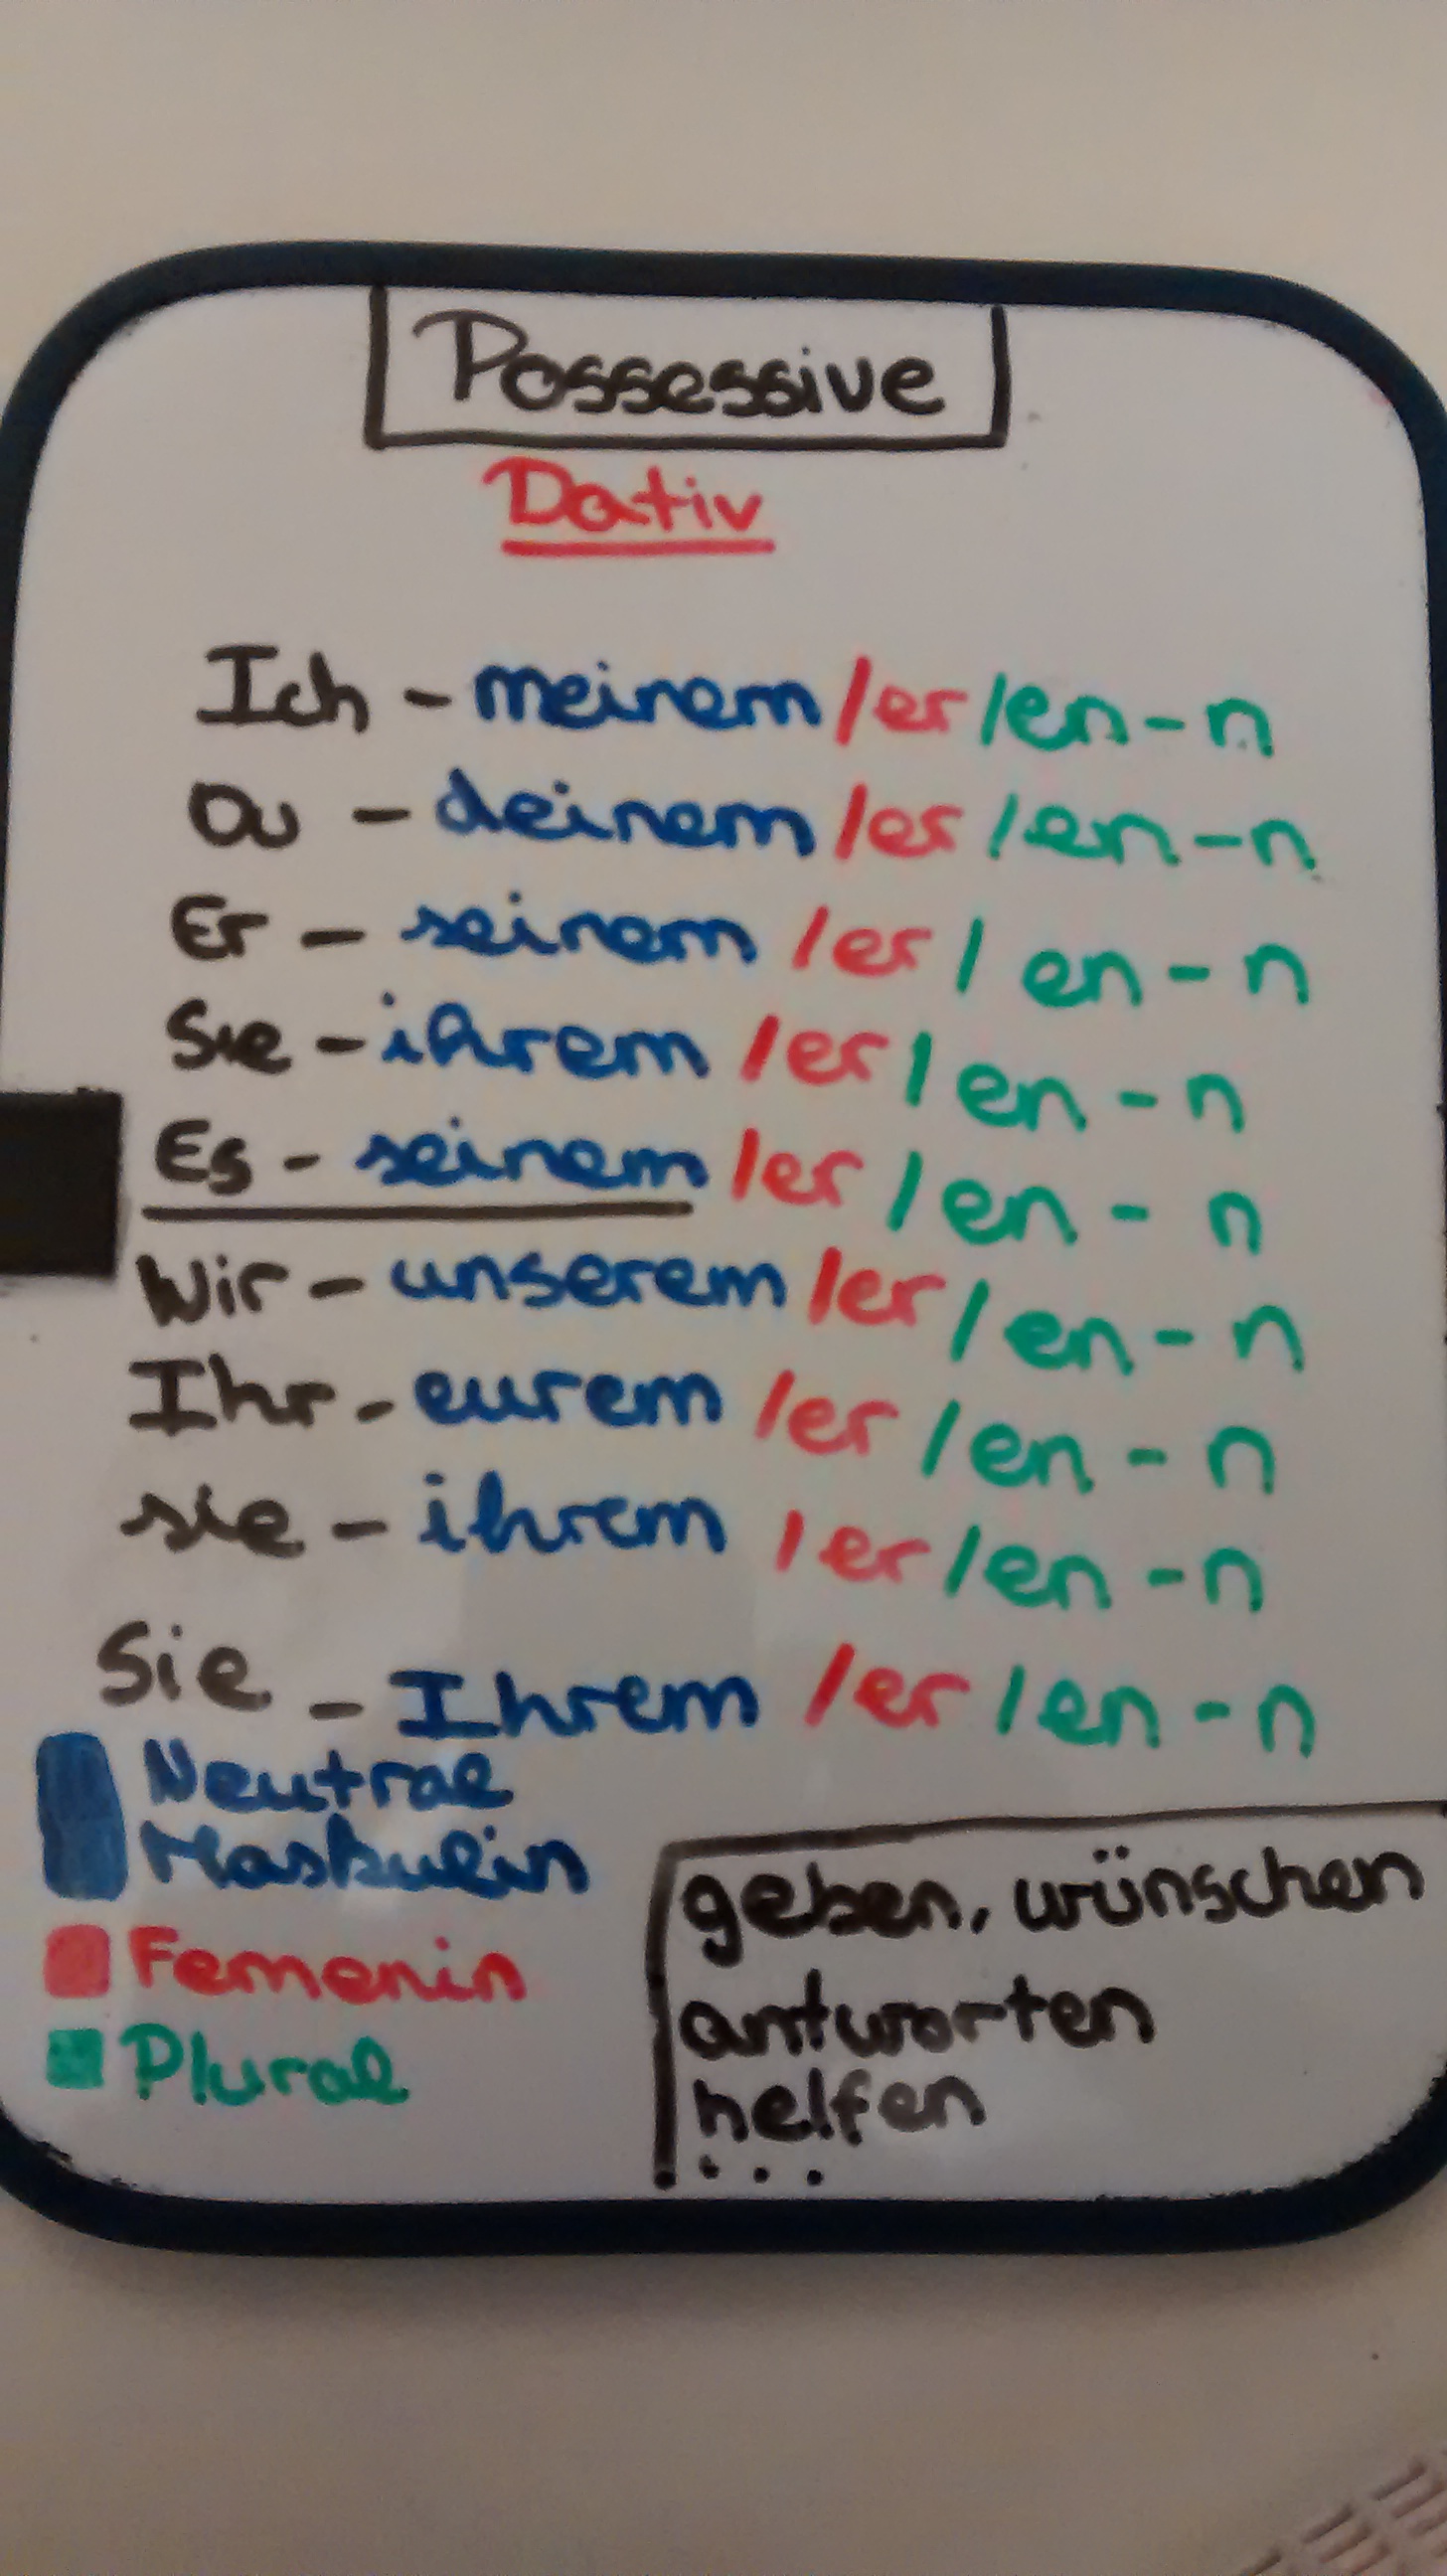 Possessive
Dativ
Ich - meinem /er /en - n
Du - deinem /er /en - n
Er - seinem /er / en - n
Sie - ihrem /er / en - n
Es - seinem /er / en - n
Wir - unserem /er / en - n
Ihr - eurem /er / en - n
sie - ihrem /er /en - n
Sie - Ihrem /er /en - n
Neutral
Maskulin
Femenin
Plural
geben, wünschen
antworten
helfen
...